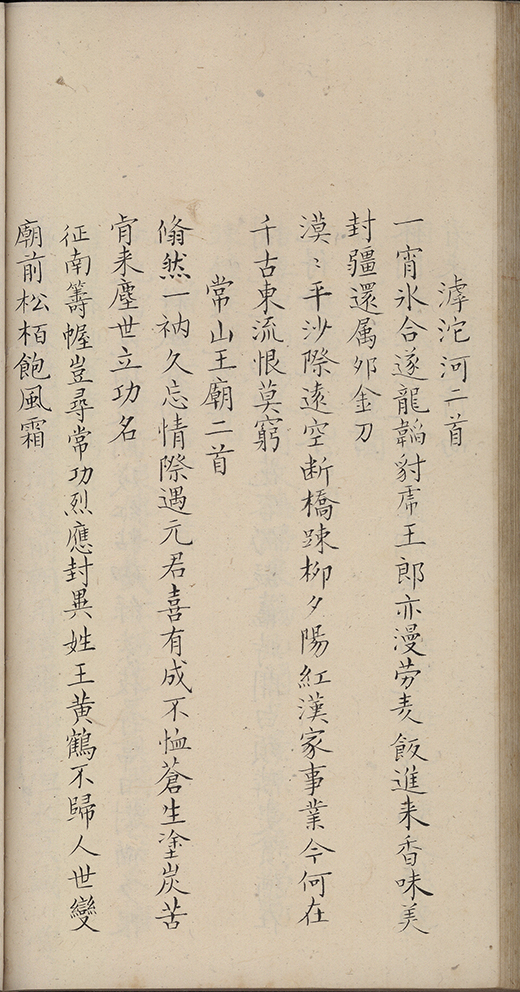 滹沱河二首
一宵氷合遂龍韜豺虎王郎亦漫劳麦飯進来香味美
封疆還属夘金刀
漠〻平沙際遠空断橋踈柳夕陽紅漢家事業今何在
千古東流恨莫窮
常山王廟二首
翛然一衲久忘情際遇元君喜有成不恤蒼生塗炭苦
肯来塵世立功名
征南籌幄豈尋常功烈應封異姓王黄鶴不歸人世變
廟前松栢飽風霜